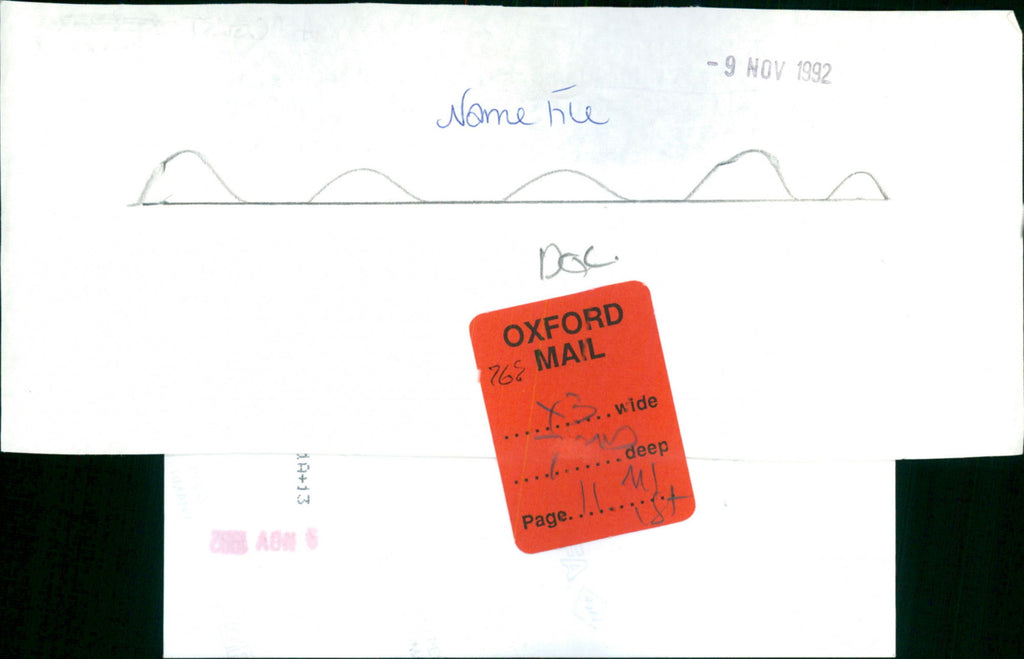 - 9 NOV 1992
Name File
Doc.
OXFORD
MAIL
768
X3 wide
deep
Page 11 M/
1st
1A+13
9 NOV 1992